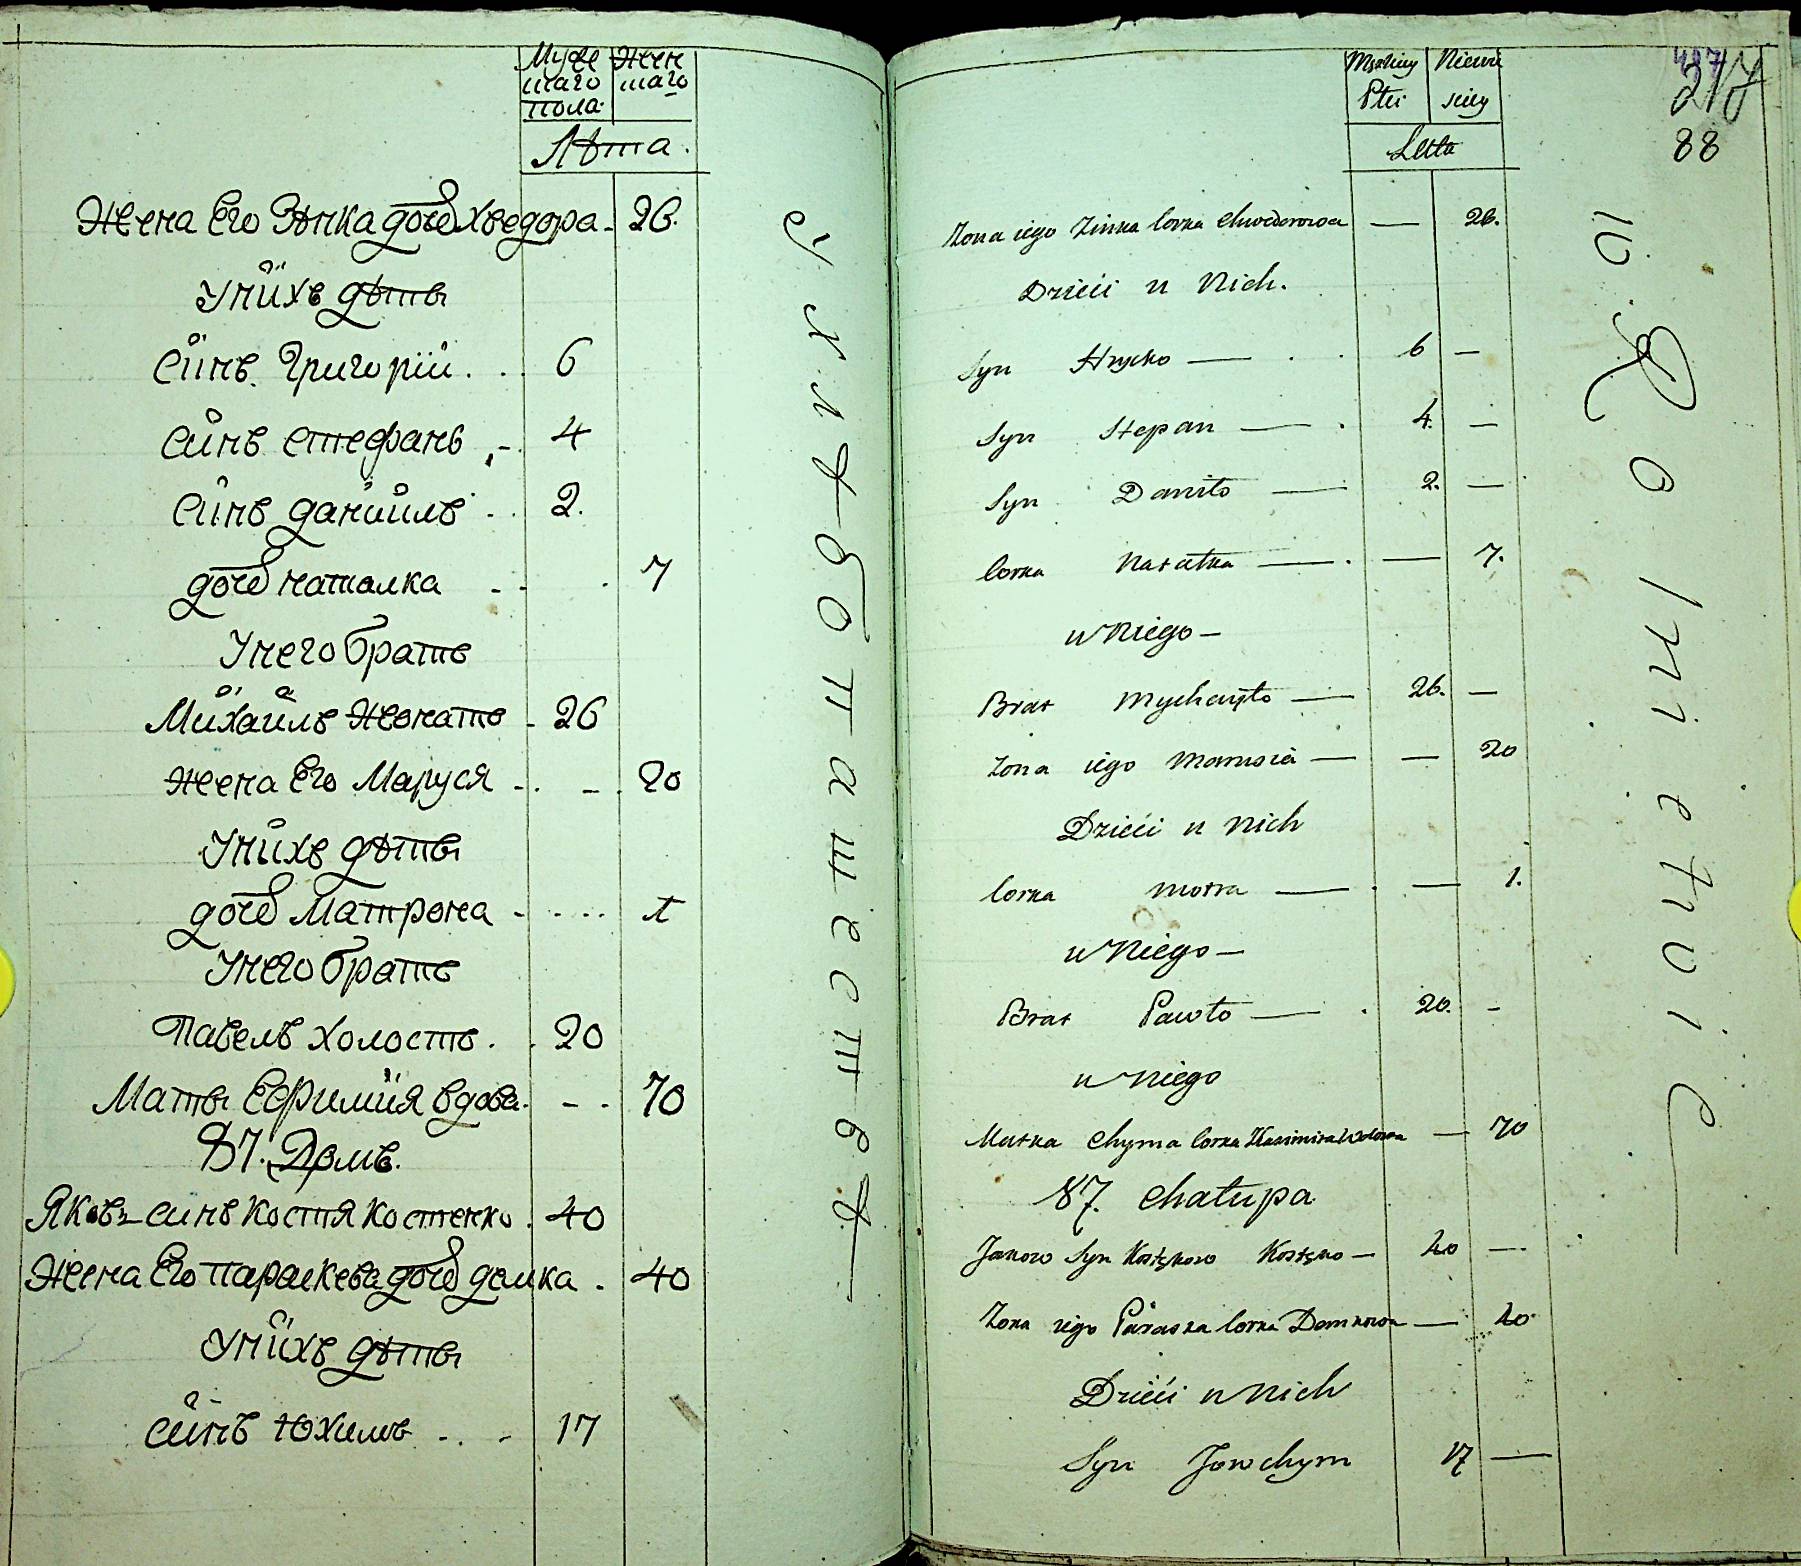 Муже Жен
шаго шаго
пола
Лѣта.
Жена Его Зѣнка дочь хведора 26.
Унйхъ дѣти
Сынъ Григорій 6
Сынъ стефанъ 4
Сынъ данийлъ 2.
дочь наталка 7
Унего братъ
Михайлъ Женатъ 26
жена Его Маруся 20
Унихъ дѣти
дочь Матрона 1
Унего братъ
Павелъ холостъ 20
Мать Ефимия вдова 70
87. Домъ.
Яковъ синъ костя костенко 40
Жена Его параскева дочь демка 40
Унихъ дѣти
синъ юхимъ 17
Męskiey Niewie
Płci sciey
Latta
217
88
Zona iego Zinka Corka Chwedorowa — 26.
Dzieći u Nich.
Syn Hryćko — 6 —
Syn Stepan — 4. —
Syn Daniło — 2. —
Corka Natałka — — 7.
u Niego —
Brat Mychayło — 26. —
Zona iego Marusia — — 20
Dzieći u nich
Corka Motra — — 1.
u Niego —
Brat Pawło — 20. —
u niego
Matka Chyma Corka Kazimira Wdowa — 70
87. Chałupa
Jakow Syn Kośćkow Kośćko — 40 —
Zona iego Paraska Corka Demkowa — 40
Dzieći u Nich
Syn Jowchym 17 —